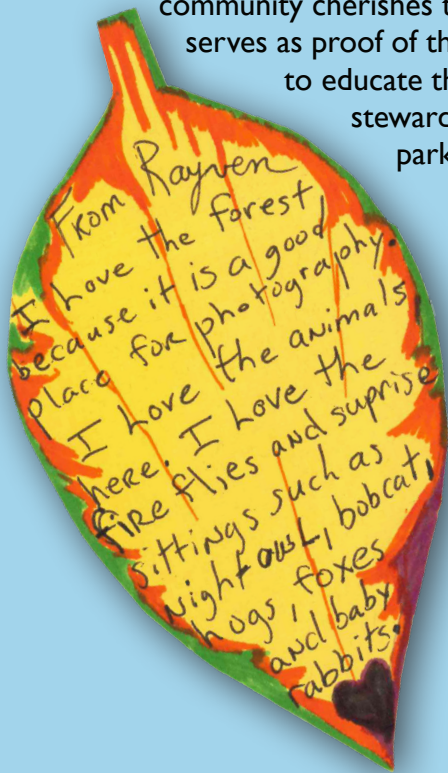 community cherishes t
serves as proof of th
to educate th
steward
park
From Rayven
I Love the forest
because it is a good
place for photography.
I Love the animals
here. I Love the
fire flies and suprise
sittings such as
Night owl, bobcat,
hogs, foxes
and baby
rabbits.